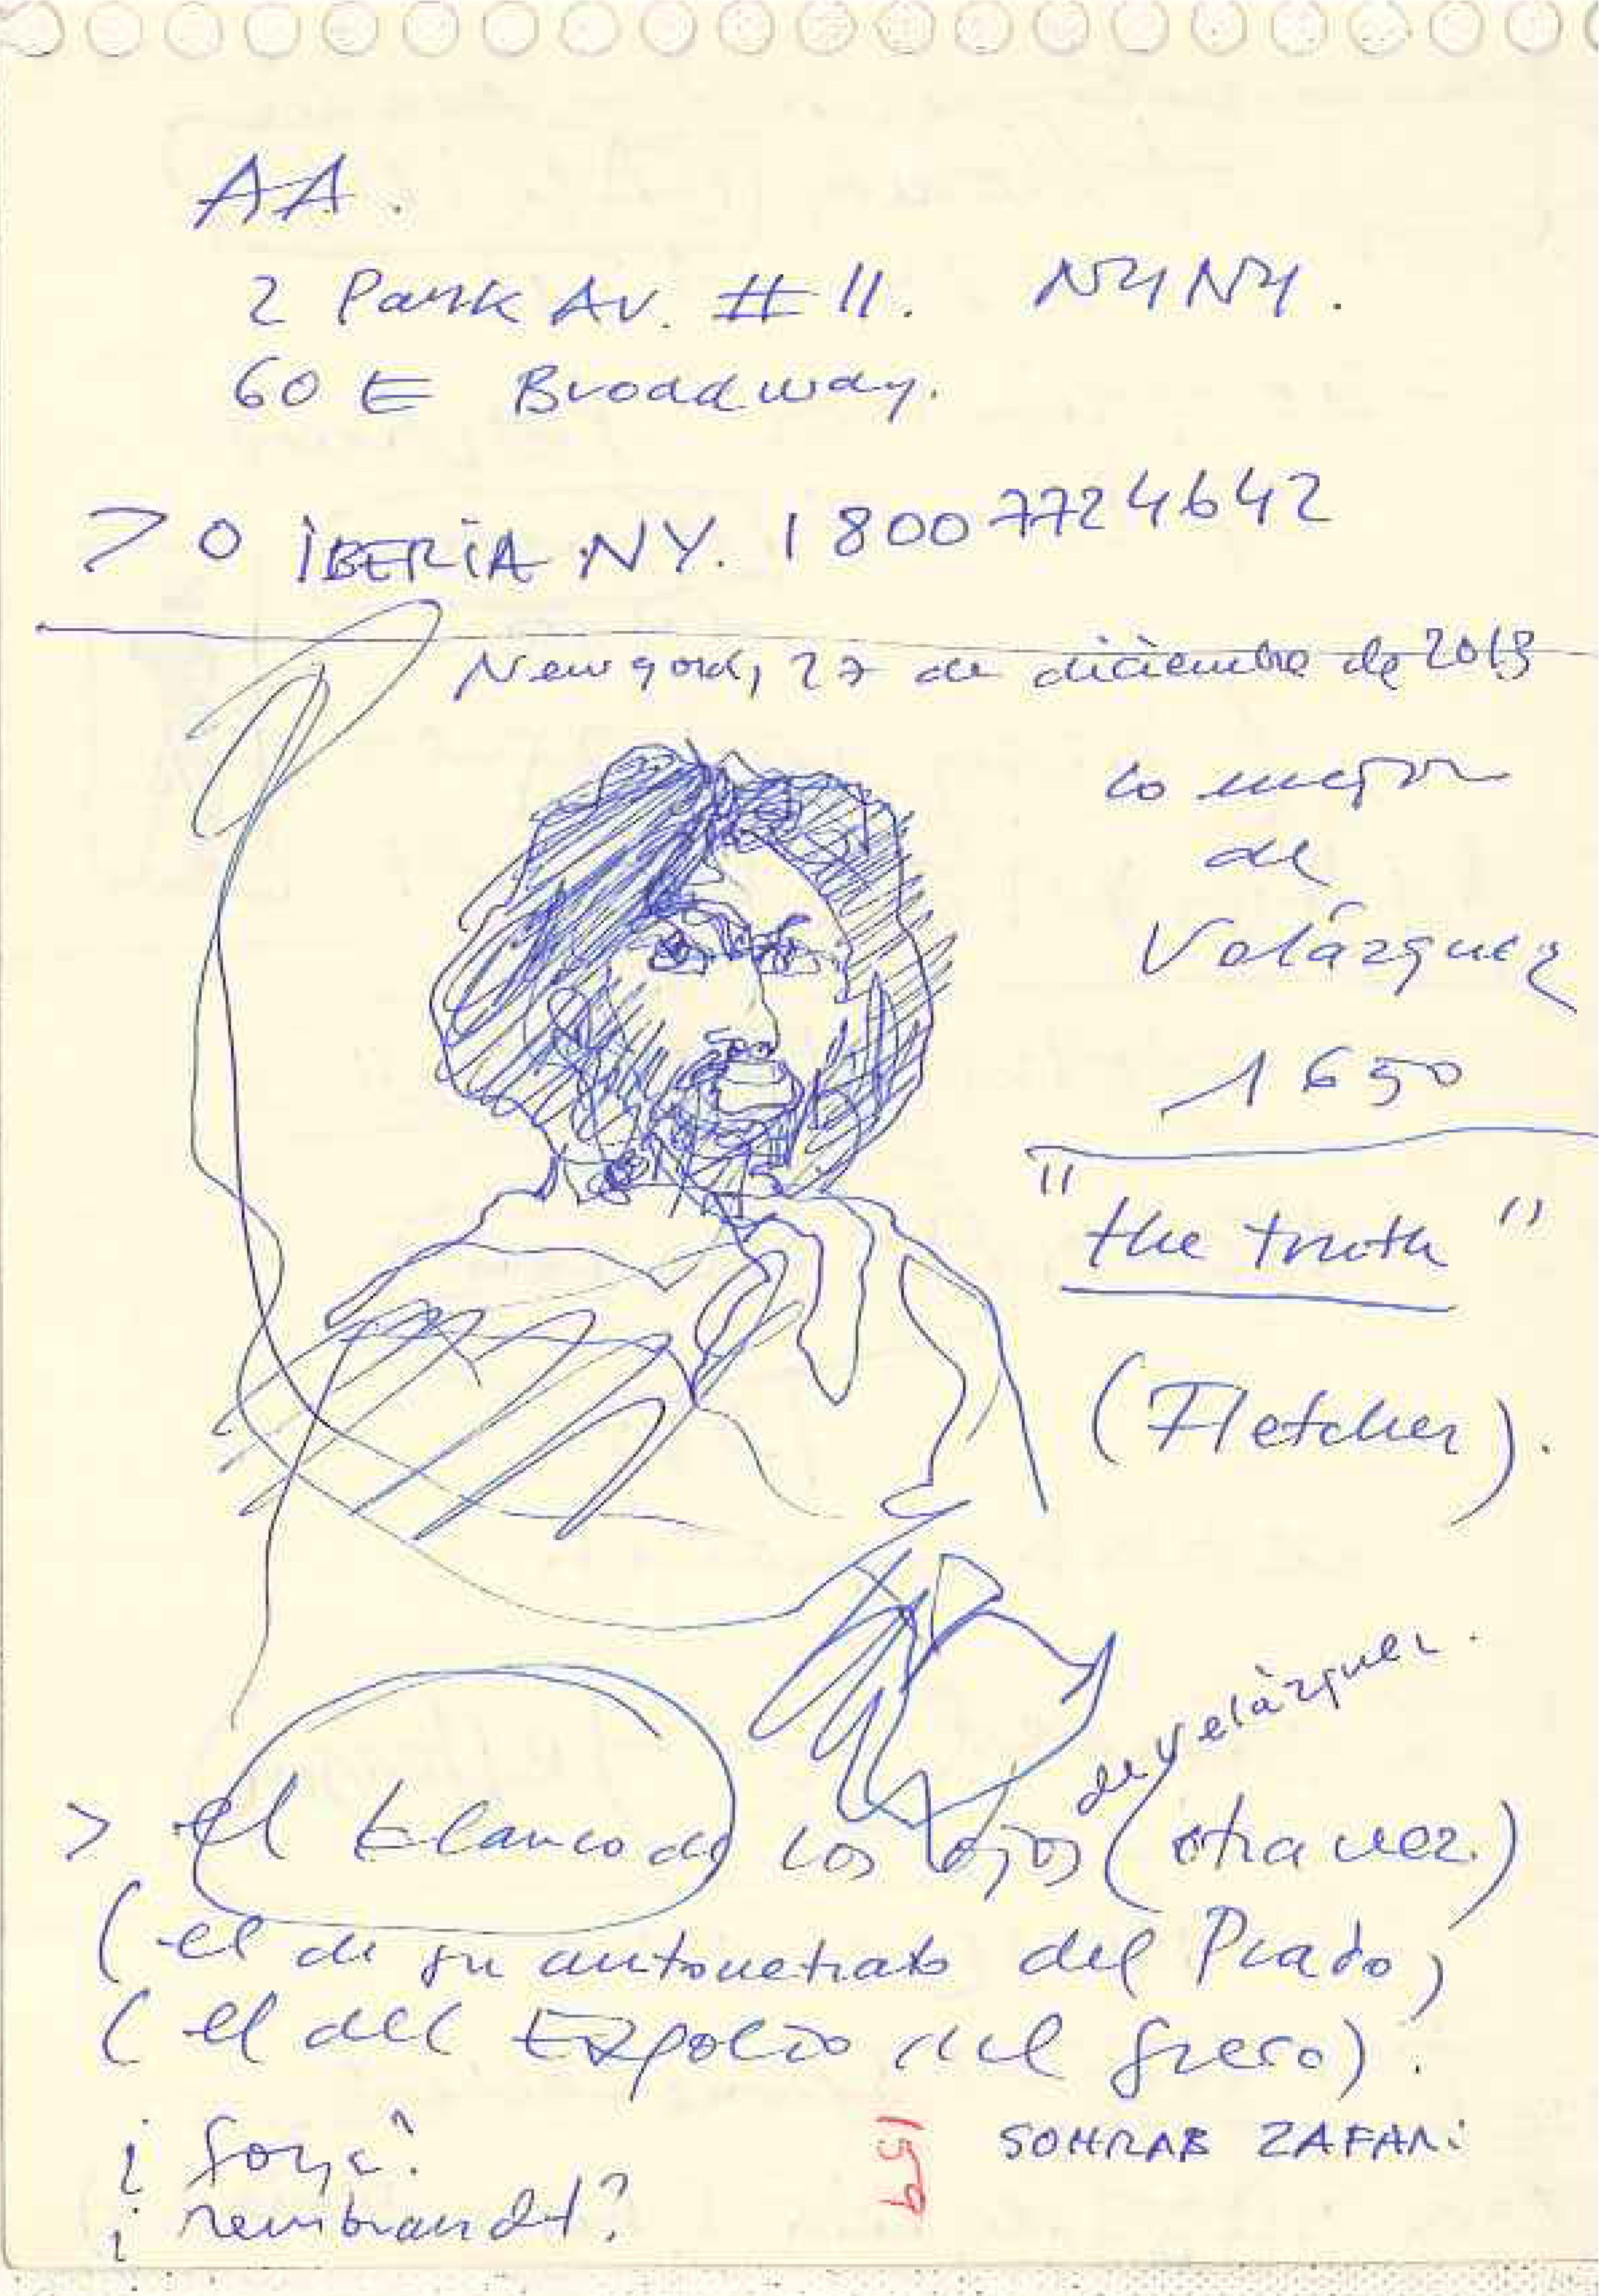 AA.
2 Park Av. # 11. NYNY.
60 E Broadway.
> o IBERIA NY. 1 800 7724642
New york, 27 de diciembre de 2013
lo mejor
de
Velázquez
1650
"the truth"
(Fletcher).
de Velázquez.
> el blanco de los ojos (otra vez.)
(el de su autorretrato del Prado)
(el del Expolio del Greco).
¿Goya?
¿rembrandt?
SOHRAB ZAFARi
159